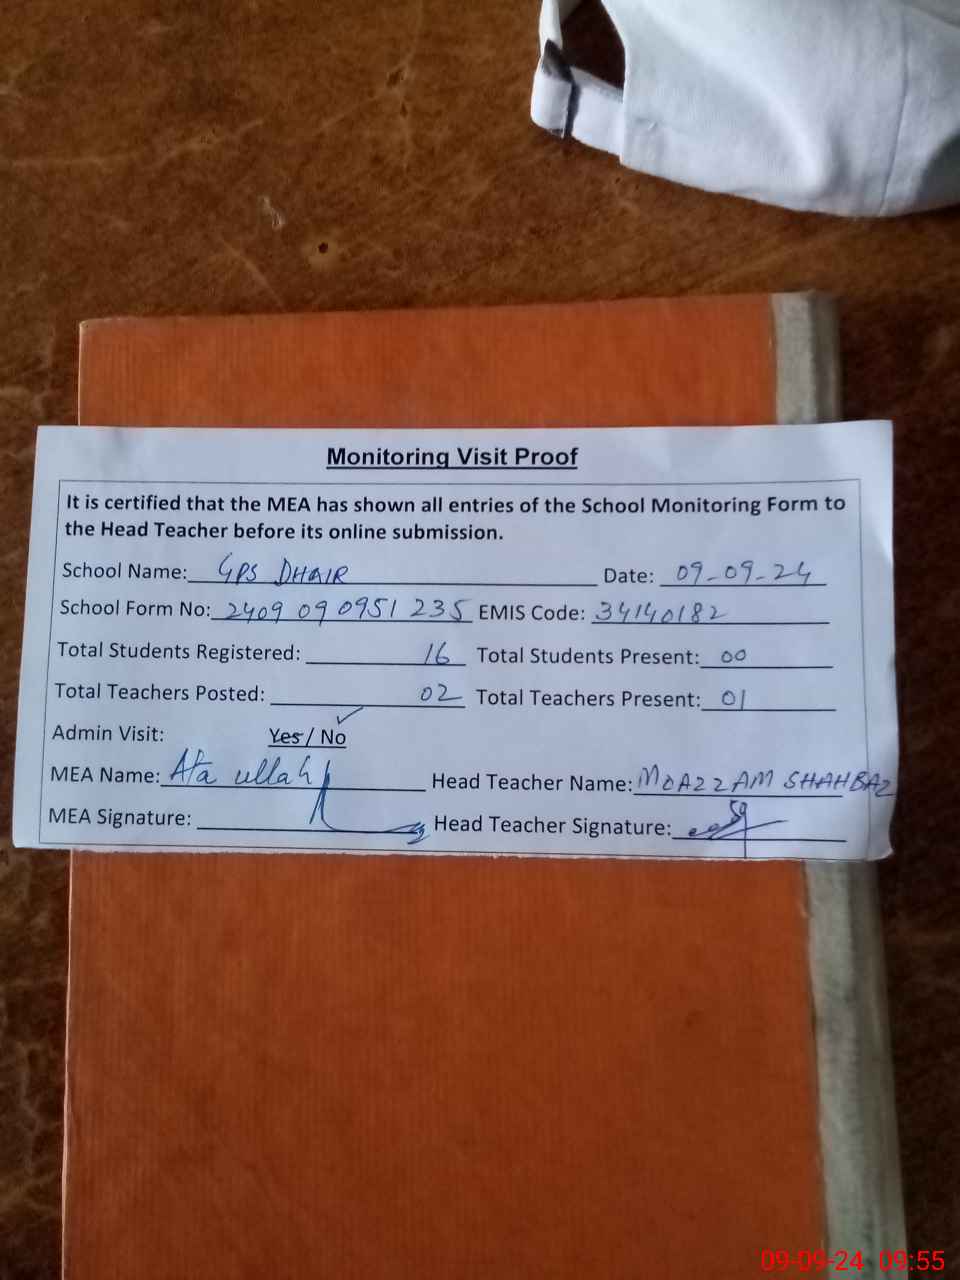 Monitoring Visit Proof
It is certified that the MEA has shown all entries of the School Monitoring Form to
the Head Teacher before its online submission.
School Name: GPS DHAIR Date: 09-09-24
School Form No: 2409 09 0951 235 EMIS Code: 34140182
Total Students Registered: 16 Total Students Present: 00
Total Teachers Posted: 02 Total Teachers Present: 01
Admin Visit: Yes / No
MEA Name: Ata ullah Head Teacher Name: MOAZZAM SHAHBAZ
MEA Signature: Head Teacher Signature:
09-09-24 09:55